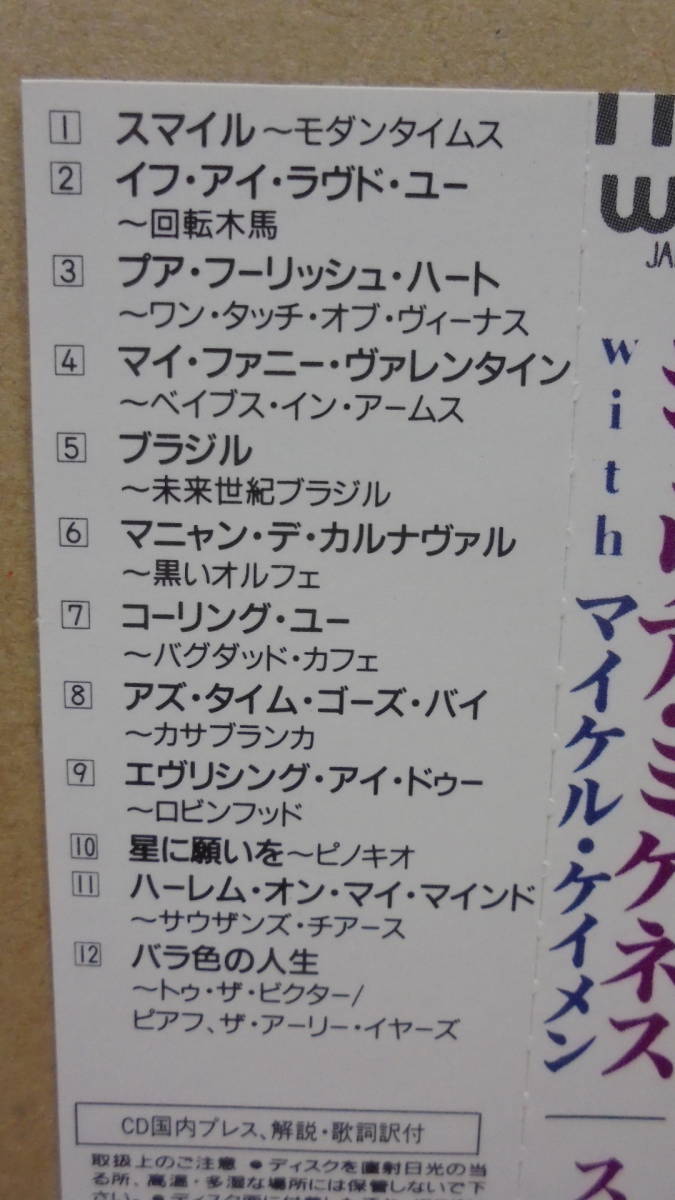 1 スマイル〜モダンタイムス
2 イフ・アイ・ラヴド・ユー
〜回転木馬
3 プア・フーリッシュ・ハート
〜ワン・タッチ・オブ・ヴィーナス
4 マイ・ファニー・ヴァレンタイン
〜ベイブス・イン・アームス
5 ブラジル
〜未来世紀ブラジル
6 マニャン・デ・カルナヴァル
〜黒いオルフェ
7 コーリング・ユー
〜バグダッド・カフェ
8 アズ・タイム・ゴーズ・バイ
〜カサブランカ
9 エヴリシング・アイ・ドゥー
〜ロビンフッド
10 星に願いを〜ピノキオ
11 ハーレム・オン・マイ・マインド
〜サウザンズ・チアース
12 バラ色の人生
〜トゥ・ザ・ビクター/
ピアフ、ザ・アーリー・イヤーズ
CD国内プレス、解説・歌詞訳付
取扱上のご注意 ●ディスクを直射日光の当
る所、高温・多湿な場所には保管しないで下
さい。
JA
with マイケル・ケイメン
ア・ミケネス
ス